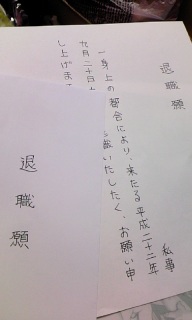 退職願
私事
一身上の都合により、来たる平成二十二年
九月二十日 いたしたく、お願い申
し上げま
退職願